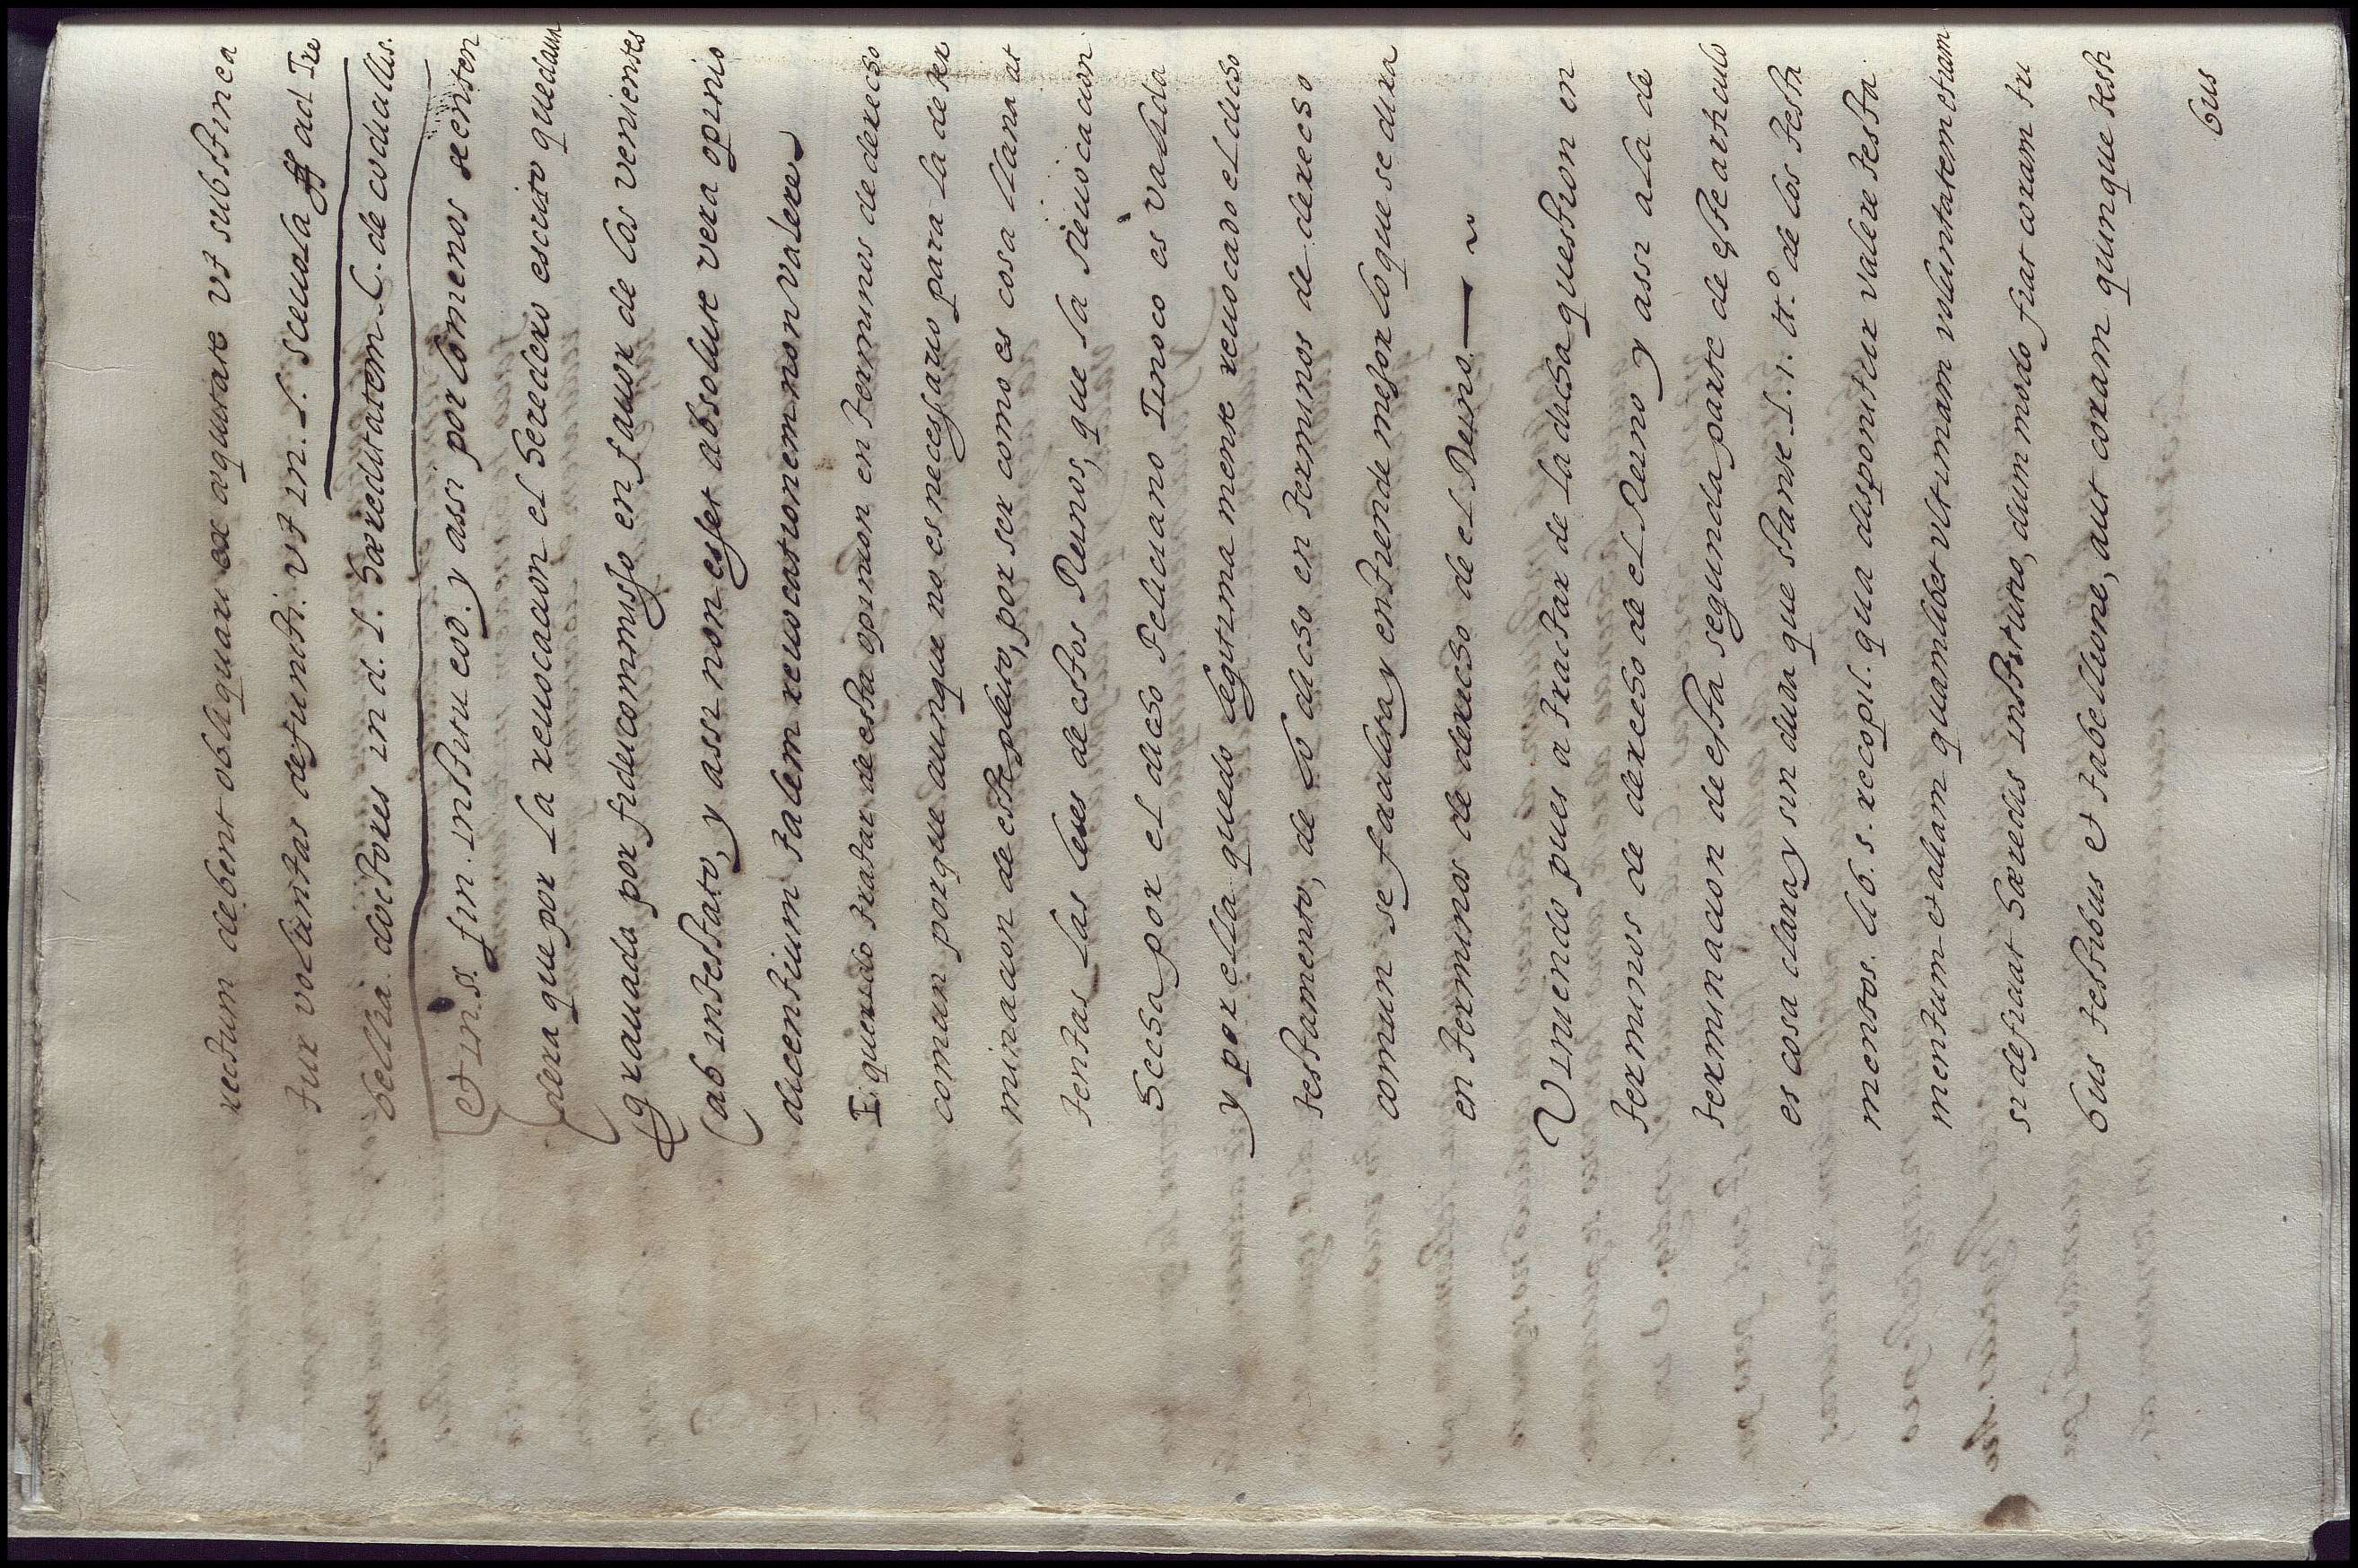 rectum debent obliquari ex aquitate vt substinea
tur voluntas defuncti. vt in. l. sceuola ff ad Tre
bellia. doctores in d. l. hæreditatem C. de codicillis.
et in §. fin. institu eod. y assi por lo menos se enten
dera que por la reuocacion el heredero escrito quedaua
grauado por fideicommisso en fauor de los venientes
ab intestato, y assi non esset absolute vera opinio
dicentium talem reuocationem non valere
I. quiendo tratar de esta opinion en terminos de derecho
comun porque aunque no es necessario para la deter
minacion de este pleito, por ser como es cosa llana at
tentas las leies de estos Reinos, que la Reuocacion
hecha por el dicho feliciano Tinoco es valida
y por ella quedo legitima mente reuocado el dicho
testamento, de lo dicho en terminos de derecho
comun se facilita y entiende mejor lo que se dira
en terminos de derecho de el Reino. —— ~
Viniendo pues a tractar de la dicha question en
terminos de derecho de el Reino y assi a la de
terminacion de esta segunda parte de este articulo
es cosa clara y sin duda que stante l. 1. tt.º de los testa
mentos. lib. 5. recopil. qua disponitur valere testa
mentum et aliam quamlibet vltimam voluntatem etiam
si deficiat hæredis institutio, dum modo fiat coram tri
bus testibus et tabellione, aut coram quinque testi
bus